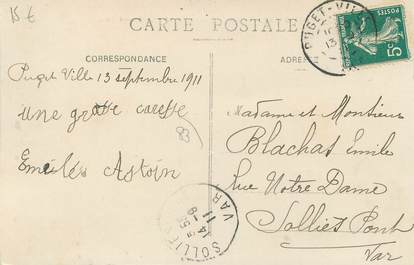 15 €
CARTE POSTALE
CORRESPONDANCE
ADRE
PUGET-VILLE
13
POSTES
5c
Puget Ville 13 septembre 1911
une grosse caresse
83
Astoin
Madame et Monsieur
Blachas Emile
Rue Notre Dame
Solliès Pont
Var
SOLLIÈS
VAR
14-9
11